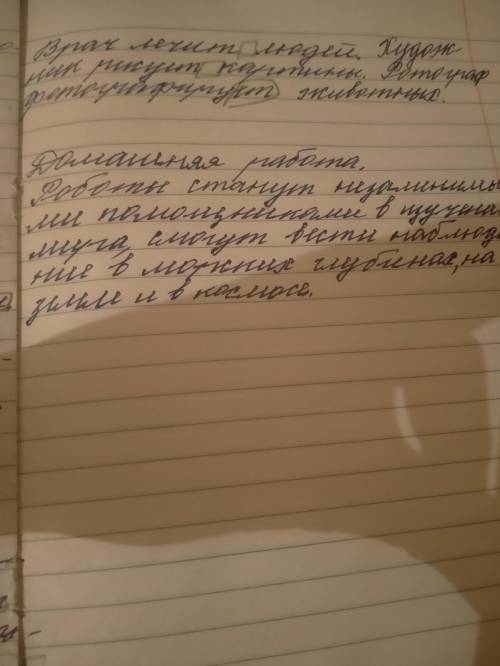 Врач лечит людей. Худож
ник рисует картины. Фотограф
фотографирует животных.
Домашняя работа.
Роботы станут незаменимы
ми помощниками в изучени
мира, смогут вести наблюде
ние в морских глубинах, на
земле и в космосе.